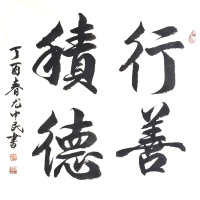 行善
積德
丁酉春尤中民書